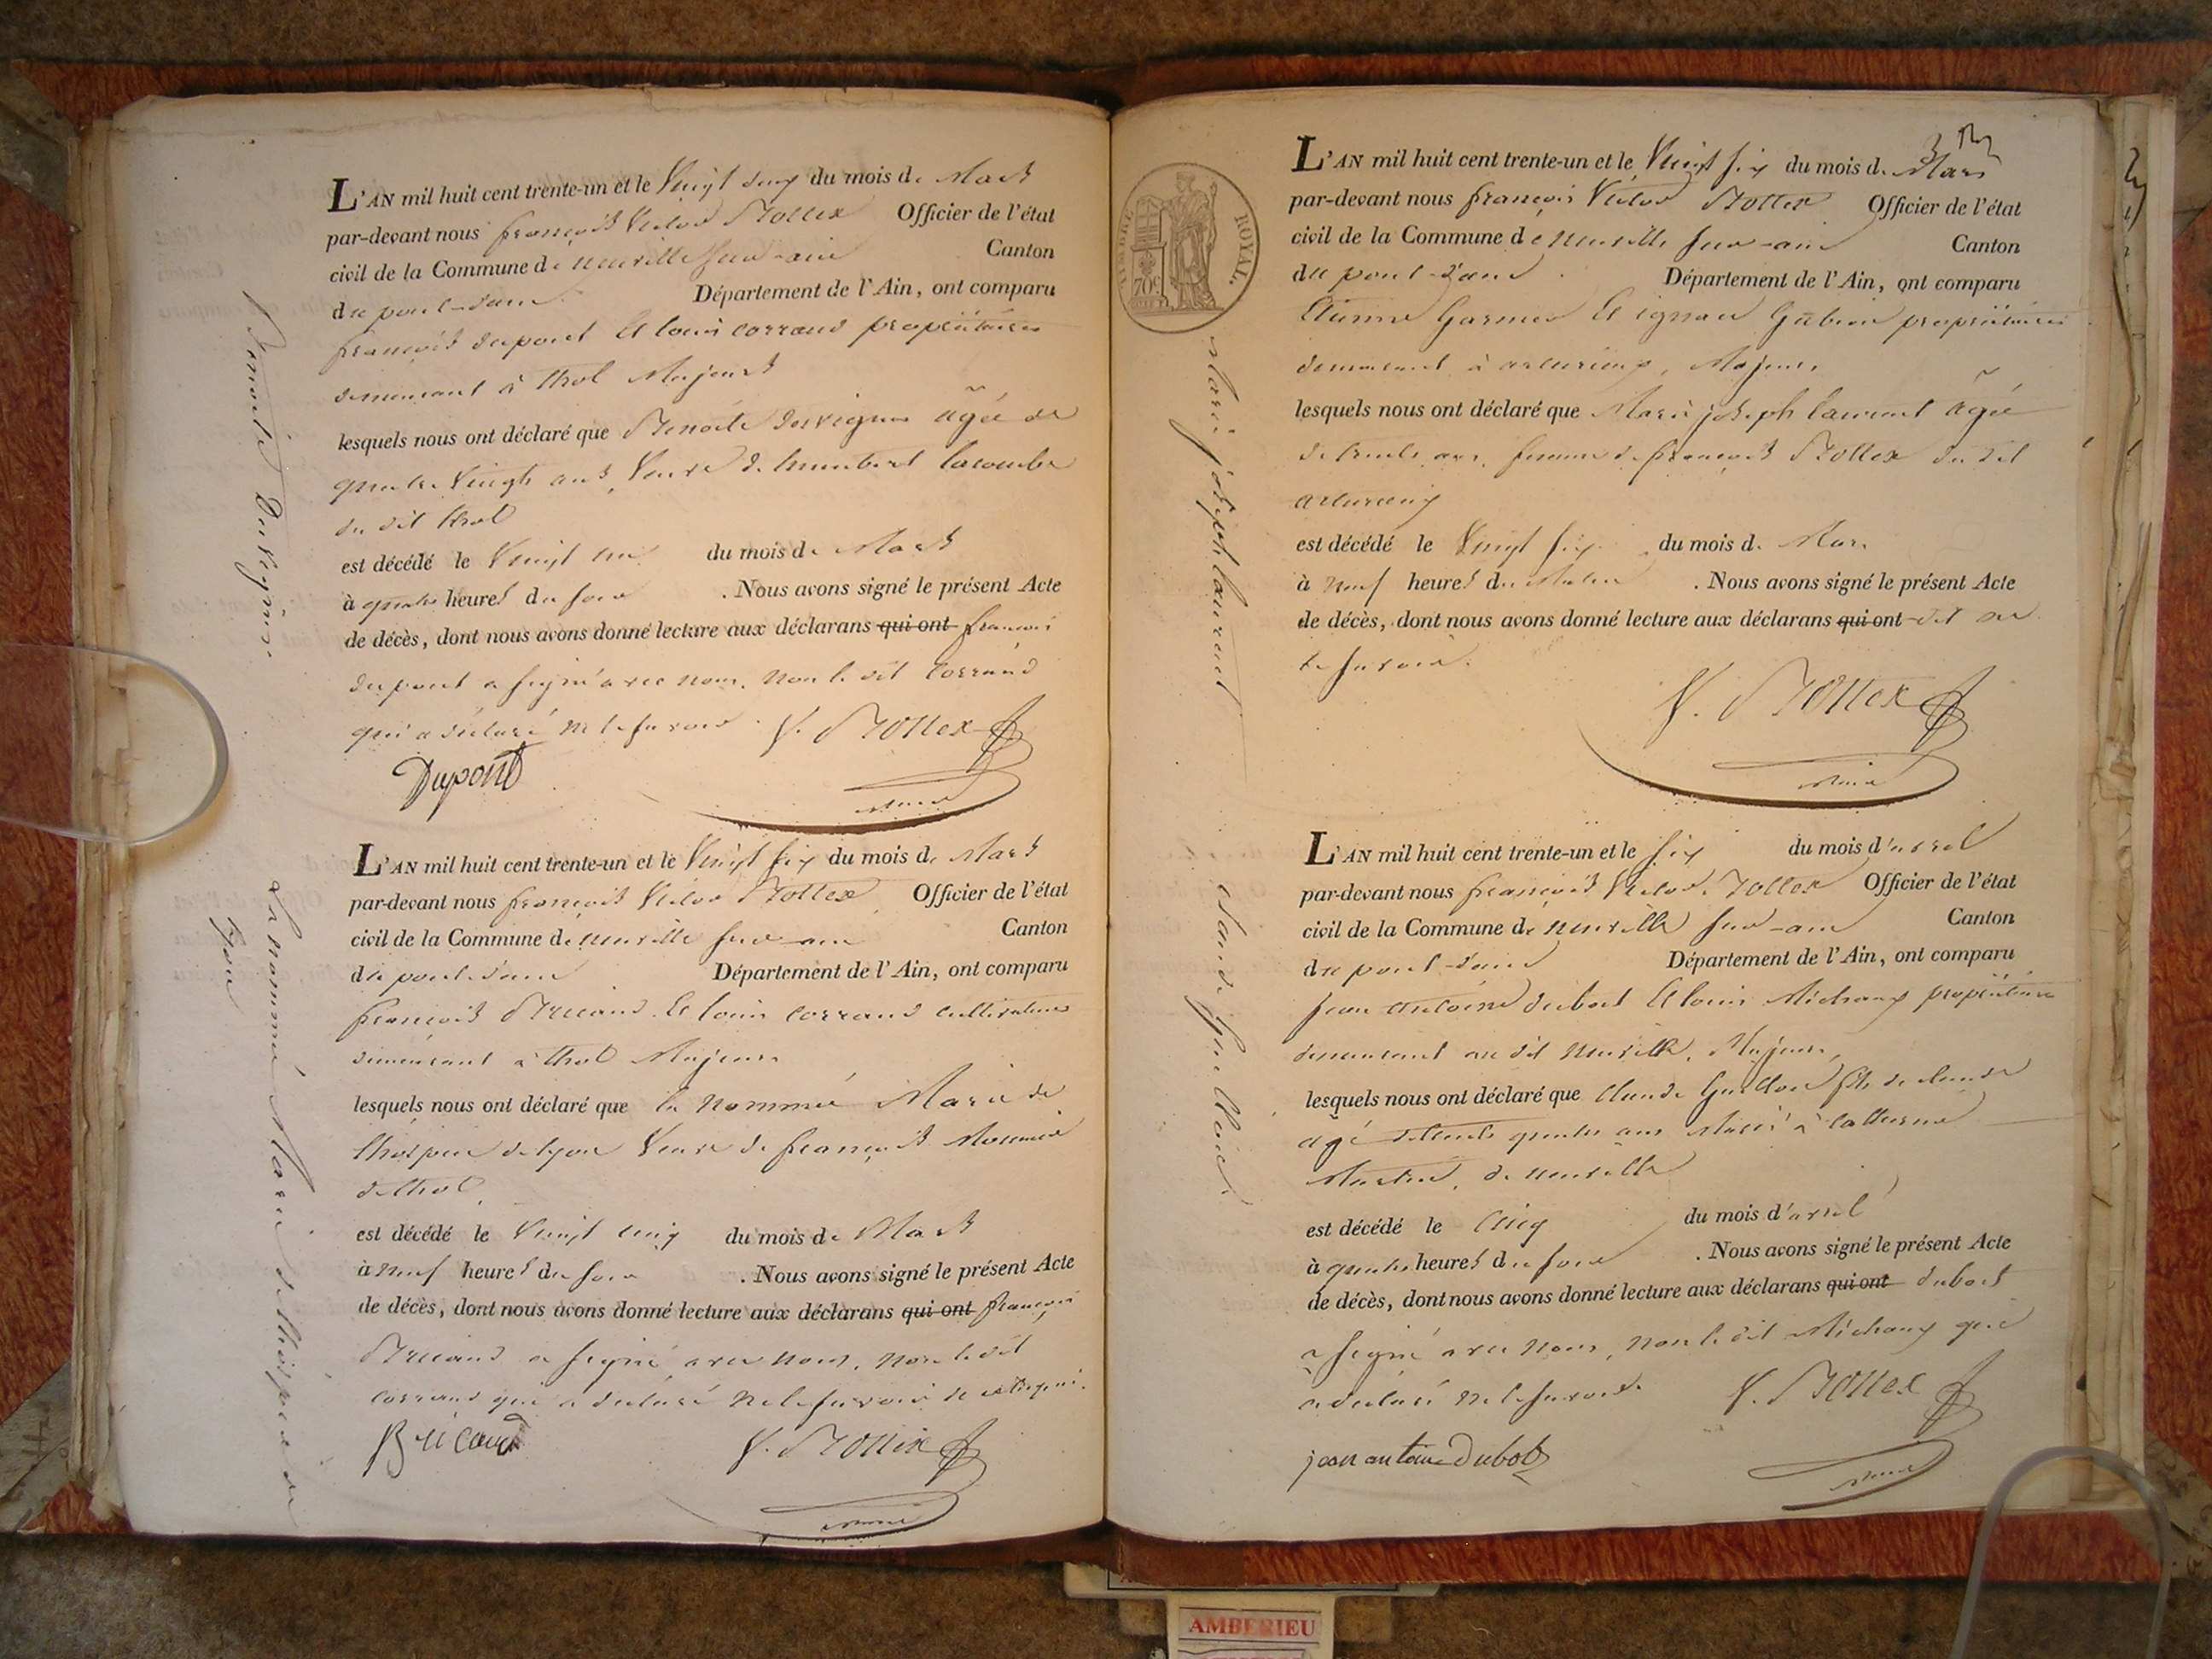 L'AN mil huit cent trente-un et le Vingt deux du mois de Mars
par-devant nous françois Victor Bottex Officier de l'état
civil de la Commune de neuville sur-ain Canton
du pont-d'ain Département de l'Ain, ont comparu
françois dupont et louis corrand propriétaires
demeurant à thol Majeurs
lesquels nous ont déclaré que Benoite Desvignes âgée de
quatre Vingts ans, Veuve d. humbert lacombe
du dit thol
est décédé le Vingt un du mois de Mars
à quatre heures du soir . Nous avons signé le présent Acte
de décès, dont nous avons donné lecture aux déclarans qui ont françois
dupont a signé avec nous, non le dit Corrand
qui a déclaré ne le savoir. V. Bottex
Dupont
Maire
Benoite Desvignes
L'AN mil huit cent trente-un et le Vingt six du mois de Mars
par-devant nous françois Victor Bottex Officier de l'état
civil de la Commune de neuville sur-ain Canton
du pont-d'ain Département de l'Ain, ont comparu
françois Bricand et louis corrand cultivateurs
demeurant à thol Majeurs
lesquels nous ont déclaré que la nommée Marie de
lhospice de lyon Veuve de françois Mounier
de thol
est décédé le Vingt cinq du mois de Mars
à neuf heures du soir . Nous avons signé le présent Acte
de décès, dont nous avons donné lecture aux déclarans qui ont françois
Bricand a signé avec nous, non le dit
corrand qui a déclaré ne le savoir de ce requis.
Bricand V. Bottex
Maire
la nommée Marie de lhospice de
lyon
TIMBRE ROYAL.
70c
L'AN mil huit cent trente-un et le Vingt six du mois de Mars
par-devant nous françois Victor Bottex Officier de l'état
civil de la Commune de neuville sur-ain Canton
du pont-d'ain Département de l'Ain, ont comparu
Etienne Garnier et ignace propriétaires
demeurant à , Majeurs
lesquels nous ont déclaré que Marie joseph laurent âgée
de trente ans, femme de françois Bottex du dit
est décédé le Vingt six du mois de Mars
à neuf heures du Matin . Nous avons signé le présent Acte
de décès, dont nous avons donné lecture aux déclarans qui ont dit ne
le savoir.
V. Bottex
Maire
Marie joseph laurent
L'AN mil huit cent trente-un et le six du mois d'avril
par-devant nous françois Victor Bottex Officier de l'état
civil de la Commune de neuville sur-ain Canton
du pont-d'ain Département de l'Ain, ont comparu
jean antoine dubost et louis Michaux propriétaires
demeurant au dit neuville, Majeurs,
lesquels nous ont déclaré que Claude Guilloud fils de claude
âgé de trente quatre ans Marié à catherine
Martin, de neuville
est décédé le cinq du mois d'avril
à quatre heures du soir . Nous avons signé le présent Acte
de décès, dont nous avons donné lecture aux déclarans qui ont dubost
a signé avec nous, non le dit Michaux qui
a déclaré ne le savoir. V. Bottex
jean antoine Dubost
Maire
AMBERIEU